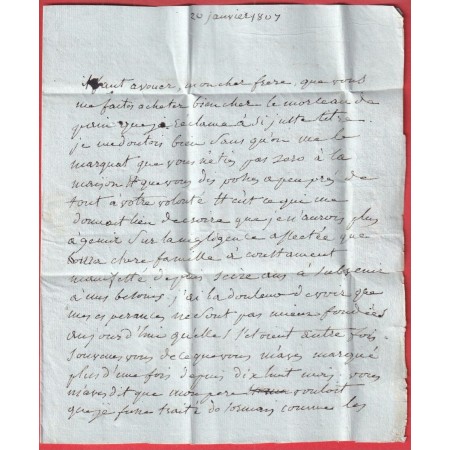 20 janvier 1807
il faut avouer, mon cher frere, que vous
me faites acheter bien cher le morceau de
pain que je reclame à si juste titre.
je me doutois bien sans qu'on me le
marquat que vous n'etiés pas zero à la
maison et que vous disposés a peu près de
tout à votre volonté et c'est ce qui me
donnoit lieu de croire que je n'aurois plus
a gemir sur la negligence affectée que
ma chere famille a constament
manifesté depuis seize ans à subvenir
à mes besoins; j'ai la douleur de voir que
mes esperances ne sont pas mieux fondées
aujourd'hui quelles l'etoient autre fois.
souvenes vous de ce que vous m'aves marqué
plus d'une fois depuis dix huit mois: vous
m'aves dit que mon pere vouloit
que je fusse traité de comme les